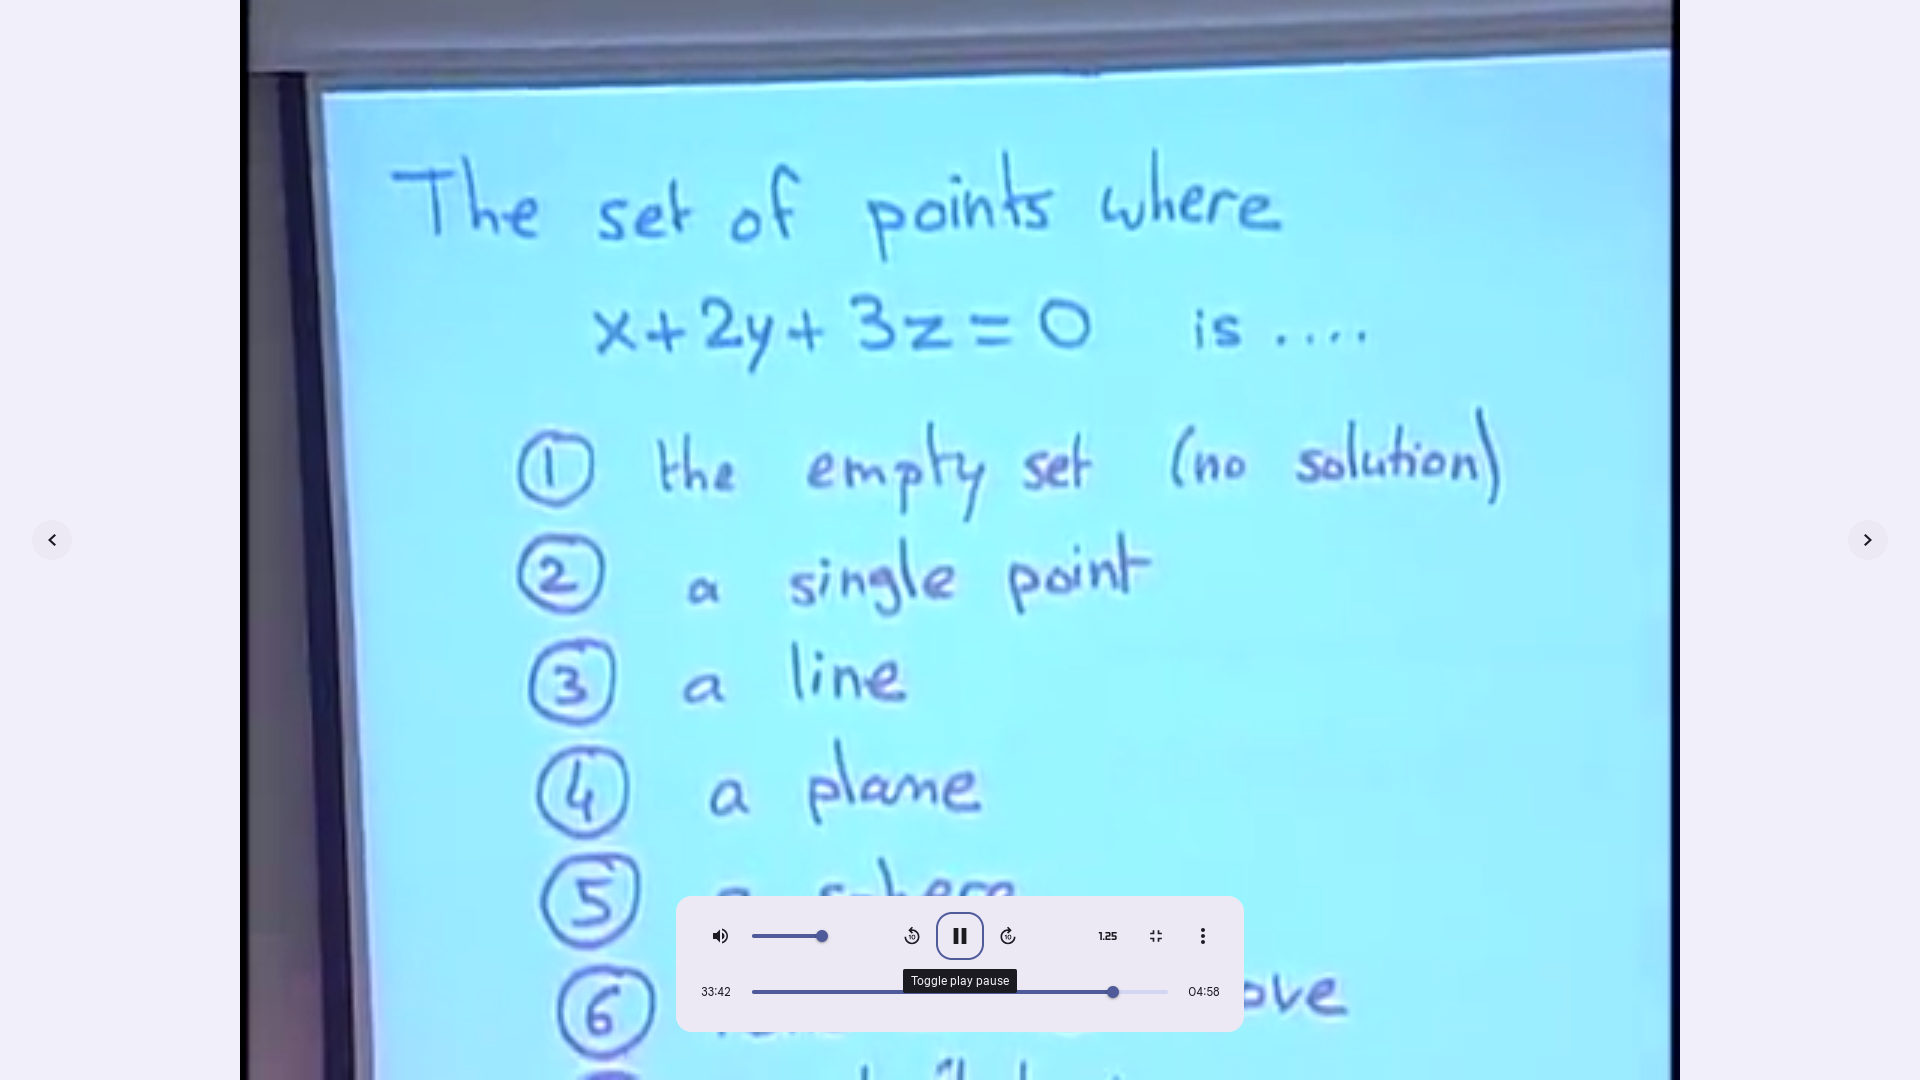 The set of points where
x+2y+3z=0 is ....
① the empty set (no solution)
② a single point
③ a line
④ a plane
⑤ a sphere
⑥
1.25
Toggle play pause
33:42
04:58